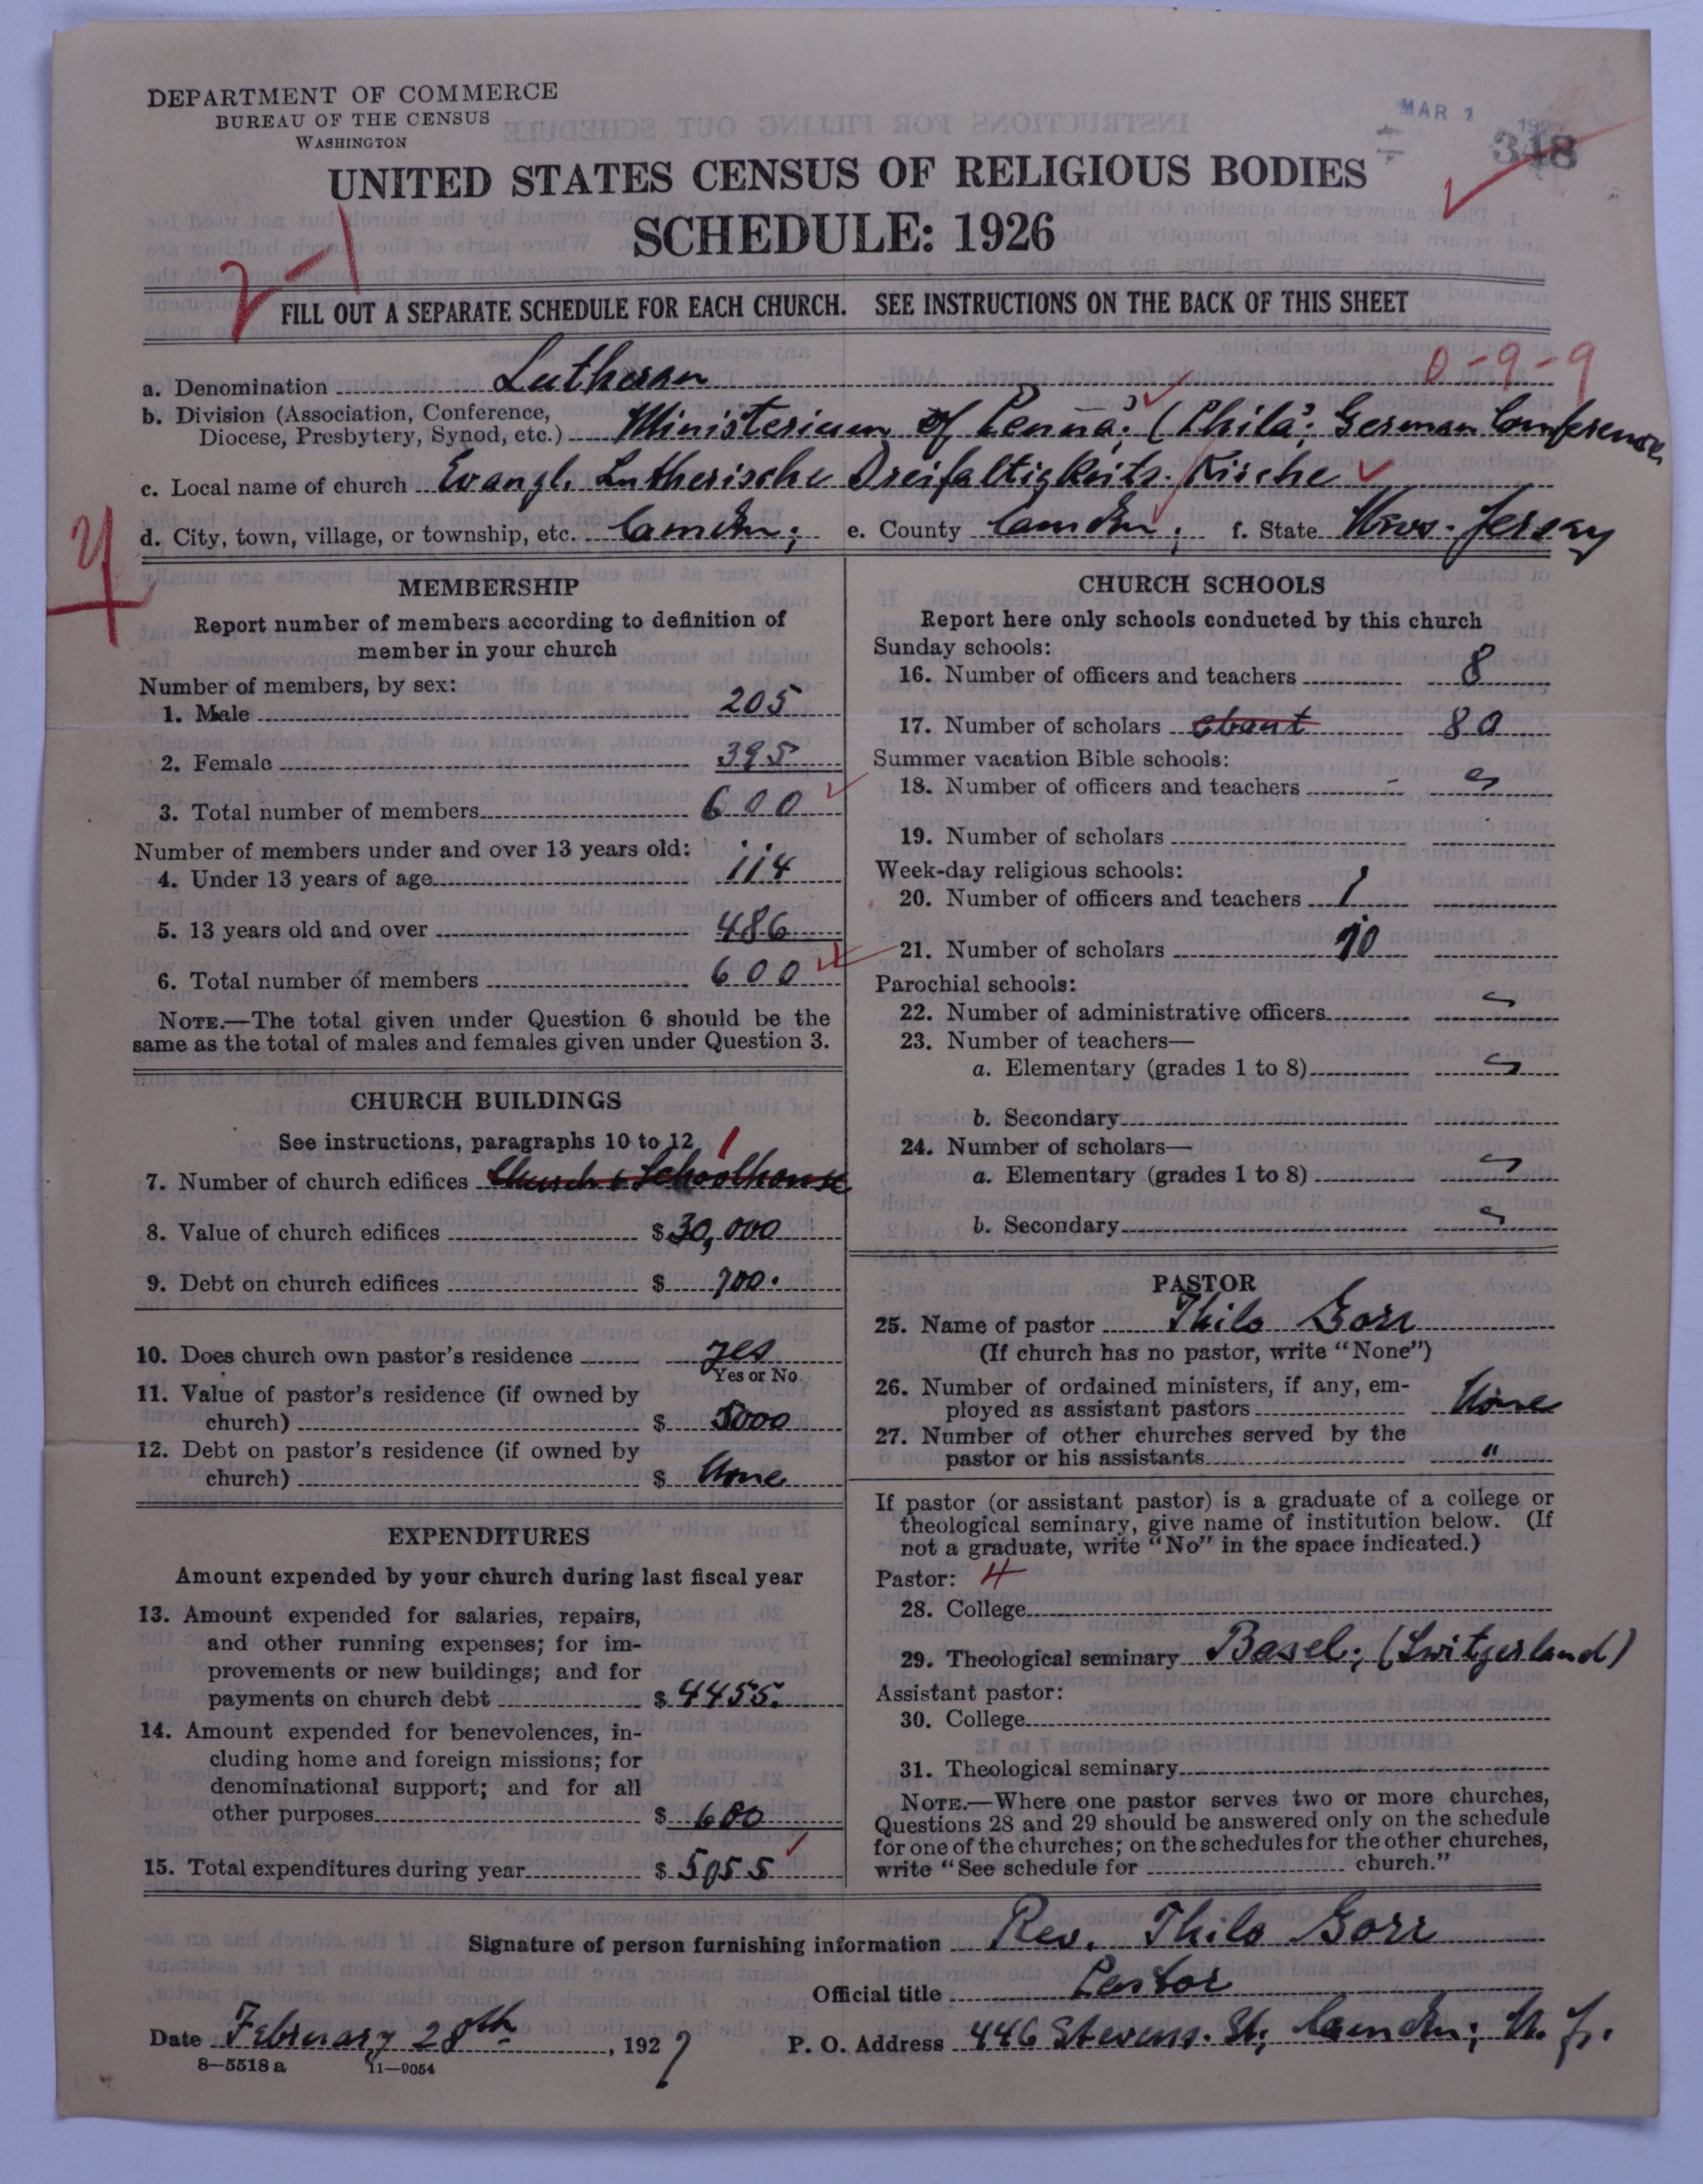 DEPARTMENT OF COMMERCE
BUREAU OF THE CENSUS
WASHINGTON
MAR 1
348
UNITED STATES CENSUS OF RELIGIOUS BODIES
SCHEDULE: 1926
2-1
FILL OUT A SEPARATE SCHEDULE FOR EACH CHURCH. SEE INSTRUCTIONS ON THE BACK OF THIS SHEET
0-9-9
a. Denomination Lutheran
b. Division (Association, Conference,
Diocese, Presbytery, Synod, etc.) Ministerium of Penna. (Phila. German Conference
c. Local name of church Evangl. Lutherische Dreifaltigkeits-Kirche
d. City, town, village, or township, etc. Camden; e. County Camden; f. State New-Jersey
MEMBERSHIP
Report number of members according to definition of
member in your church
Number of members, by sex:
1. Male 205
2. Female 395
3. Total number of members 600
Number of members under and over 13 years old:
4. Under 13 years of age 114
5. 13 years old and over 486
6. Total number of members 600
NOTE.—The total given under Question 6 should be the
same as the total of males and females given under Question 3.
CHURCH BUILDINGS
See instructions, paragraphs 10 to 12
1
7. Number of church edifices Church & Schoolhouse
8. Value of church edifices $30,000
9. Debt on church edifices $ 700.
10. Does church own pastor's residence yes
Yes or No
11. Value of pastor's residence (if owned by
church) $ 5000
12. Debt on pastor's residence (if owned by
church) $ None
EXPENDITURES
Amount expended by your church during last fiscal year
13. Amount expended for salaries, repairs,
and other running expenses; for im-
provements or new buildings; and for
payments on church debt $ 4455.
14. Amount expended for benevolences, in-
cluding home and foreign missions; for
denominational support; and for all
other purposes $ 600
15. Total expenditures during year $ 5055
CHURCH SCHOOLS
Report here only schools conducted by this church
Sunday schools:
16. Number of officers and teachers 8
17. Number of scholars about 80
Summer vacation Bible schools:
18. Number of officers and teachers
19. Number of scholars
Week-day religious schools:
20. Number of officers and teachers 1
21. Number of scholars 10
Parochial schools:
22. Number of administrative officers
23. Number of teachers—
a. Elementary (grades 1 to 8)
b. Secondary
24. Number of scholars—
a. Elementary (grades 1 to 8)
b. Secondary
PASTOR
25. Name of pastor Thilo Gorr
(If church has no pastor, write "None")
26. Number of ordained ministers, if any, em-
ployed as assistant pastors None
27. Number of other churches served by the
pastor or his assistants "
If pastor (or assistant pastor) is a graduate of a college or
theological seminary, give name of institution below. (If
not a graduate, write "No" in the space indicated.)
Pastor: 4
28. College
29. Theological seminary Basel; (Switzerland)
Assistant pastor:
30. College
31. Theological seminary
NOTE.—Where one pastor serves two or more churches,
Questions 28 and 29 should be answered only on the schedule
for one of the churches; on the schedules for the other churches,
write "See schedule for church."
Signature of person furnishing information Rev. Thilo Gorr
Official title Pastor
Date February 28th, 1927 P. O. Address 446 Stevens. St; Camden; N. J.
8—5518 a 11—9054